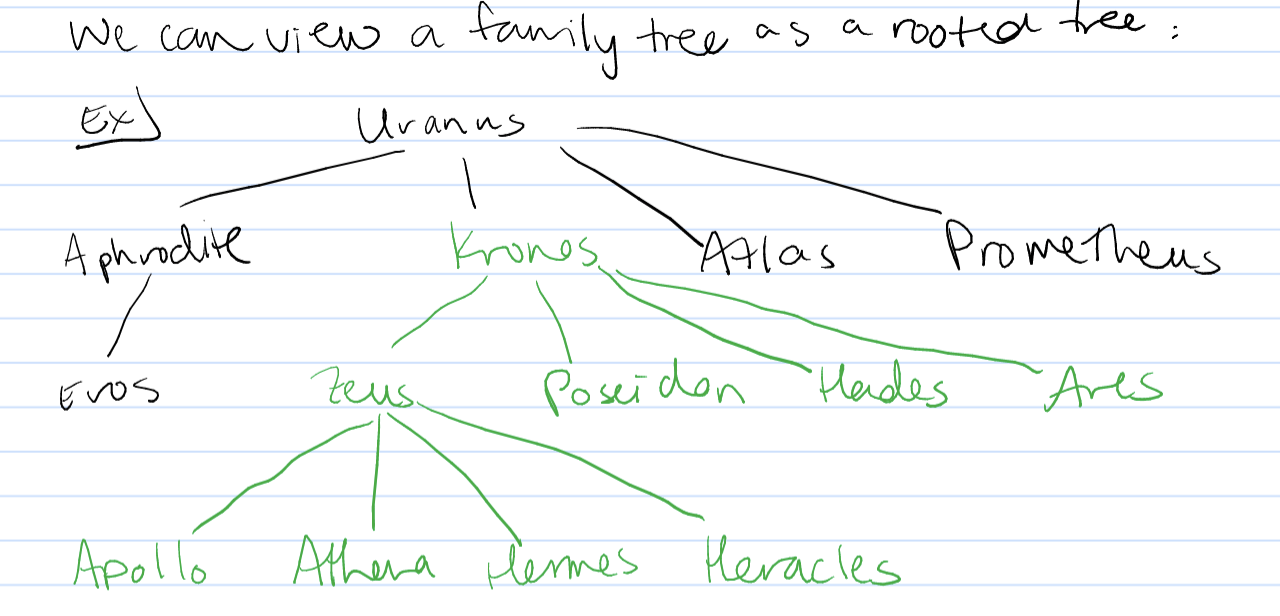 We can view a family tree as a rooted tree:
Ex)
Uranus
Aphrodite Kronos Atlas Prometheus
Eros Zeus Poseidon Hades Ares
Apollo Athena Hermes Heracles